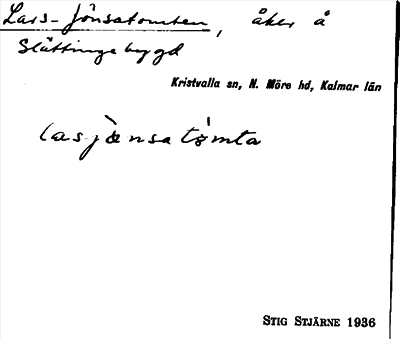 Lars-Jönsatomten, åker å
Slättingebygd
Kristvalla sn, N. Möre hd, Kalmar län
lasjønsatømta
STIG STJÄRNE 1936